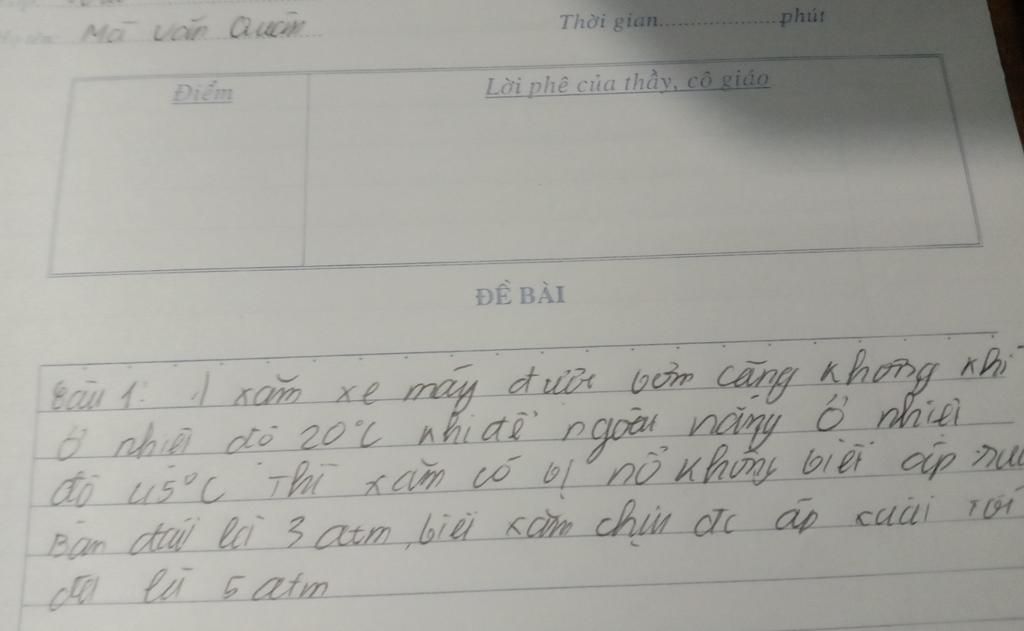 Mã Văn Quân
Thời gian..................phút
Điểm
Lời phê của thầy, cô giáo
ĐỀ BÀI
Câu 1: 1 xăm xe máy được bơm căng không khí
ở nhiệt độ 20°C khi để ngoài nắng ở nhiệt
độ 45°C thì xăm có bị nổ không biết áp suấ
Ban đầu là 3 atm, biết xăm chịu đc áp suất tối
đa là 5 atm